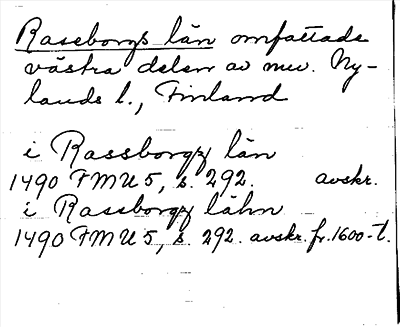 Raseborgs län omfattade
västra delen av nuv. Ny-
lands l., Finland
i Rassborgz län
1490 FMU 5, s. 292. avskr.
i Rassborgz lähn
1490 FMU 5, s. 292. avskr. fr. 1600-t.